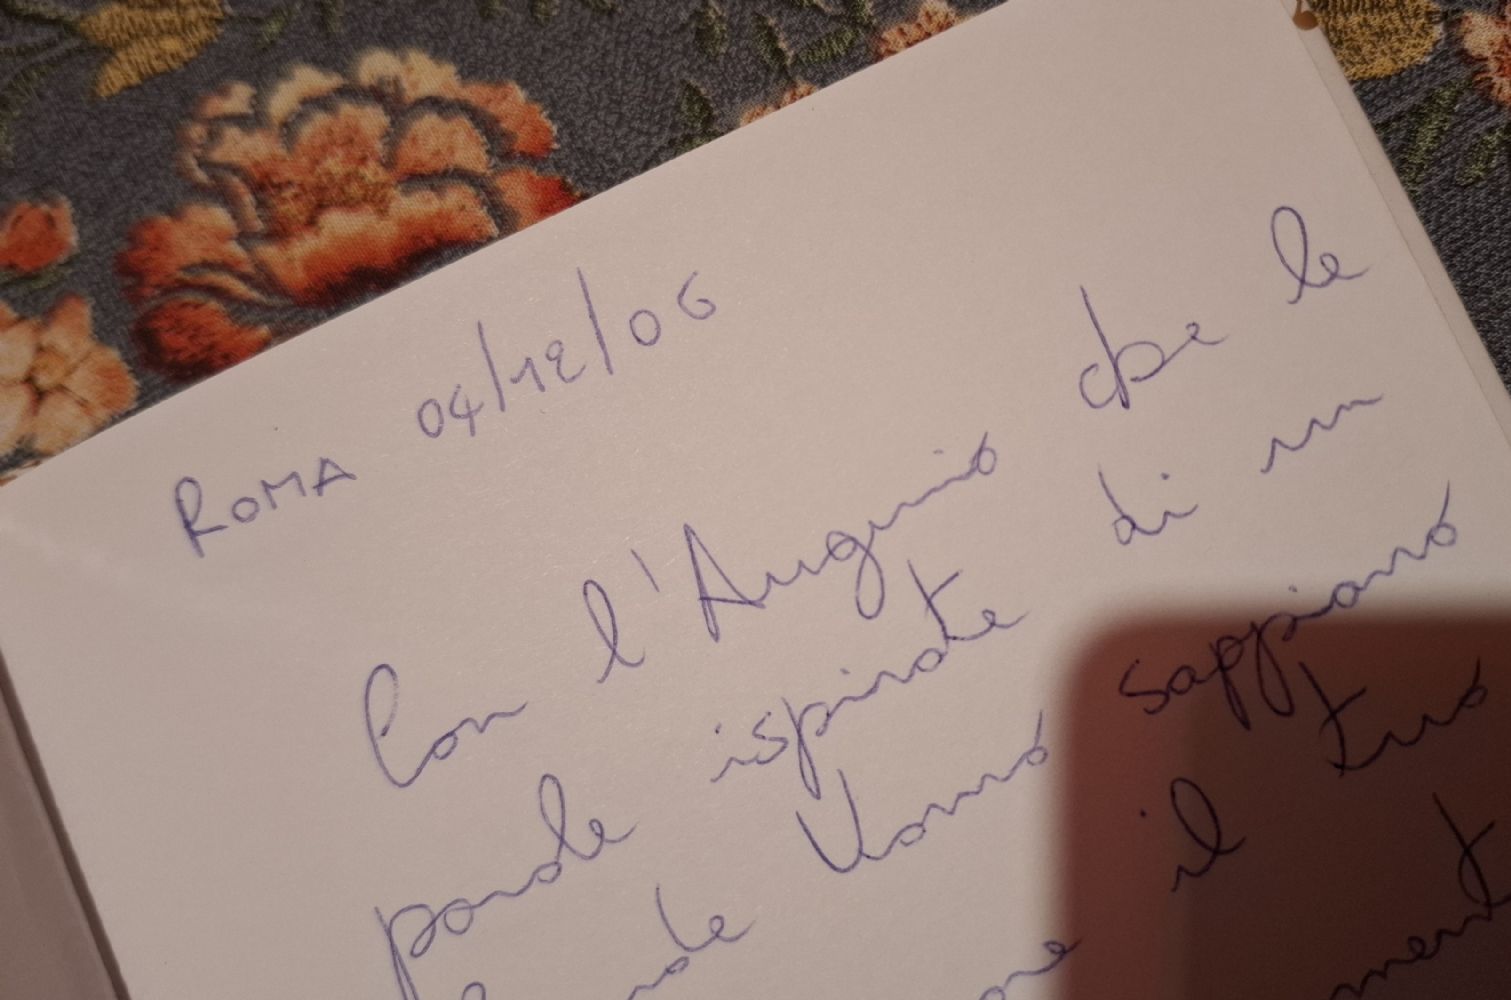 ROMA 04/12/06
Con l'Augurio che le
parole ispirate di un
Uomo sappiano
il tuo